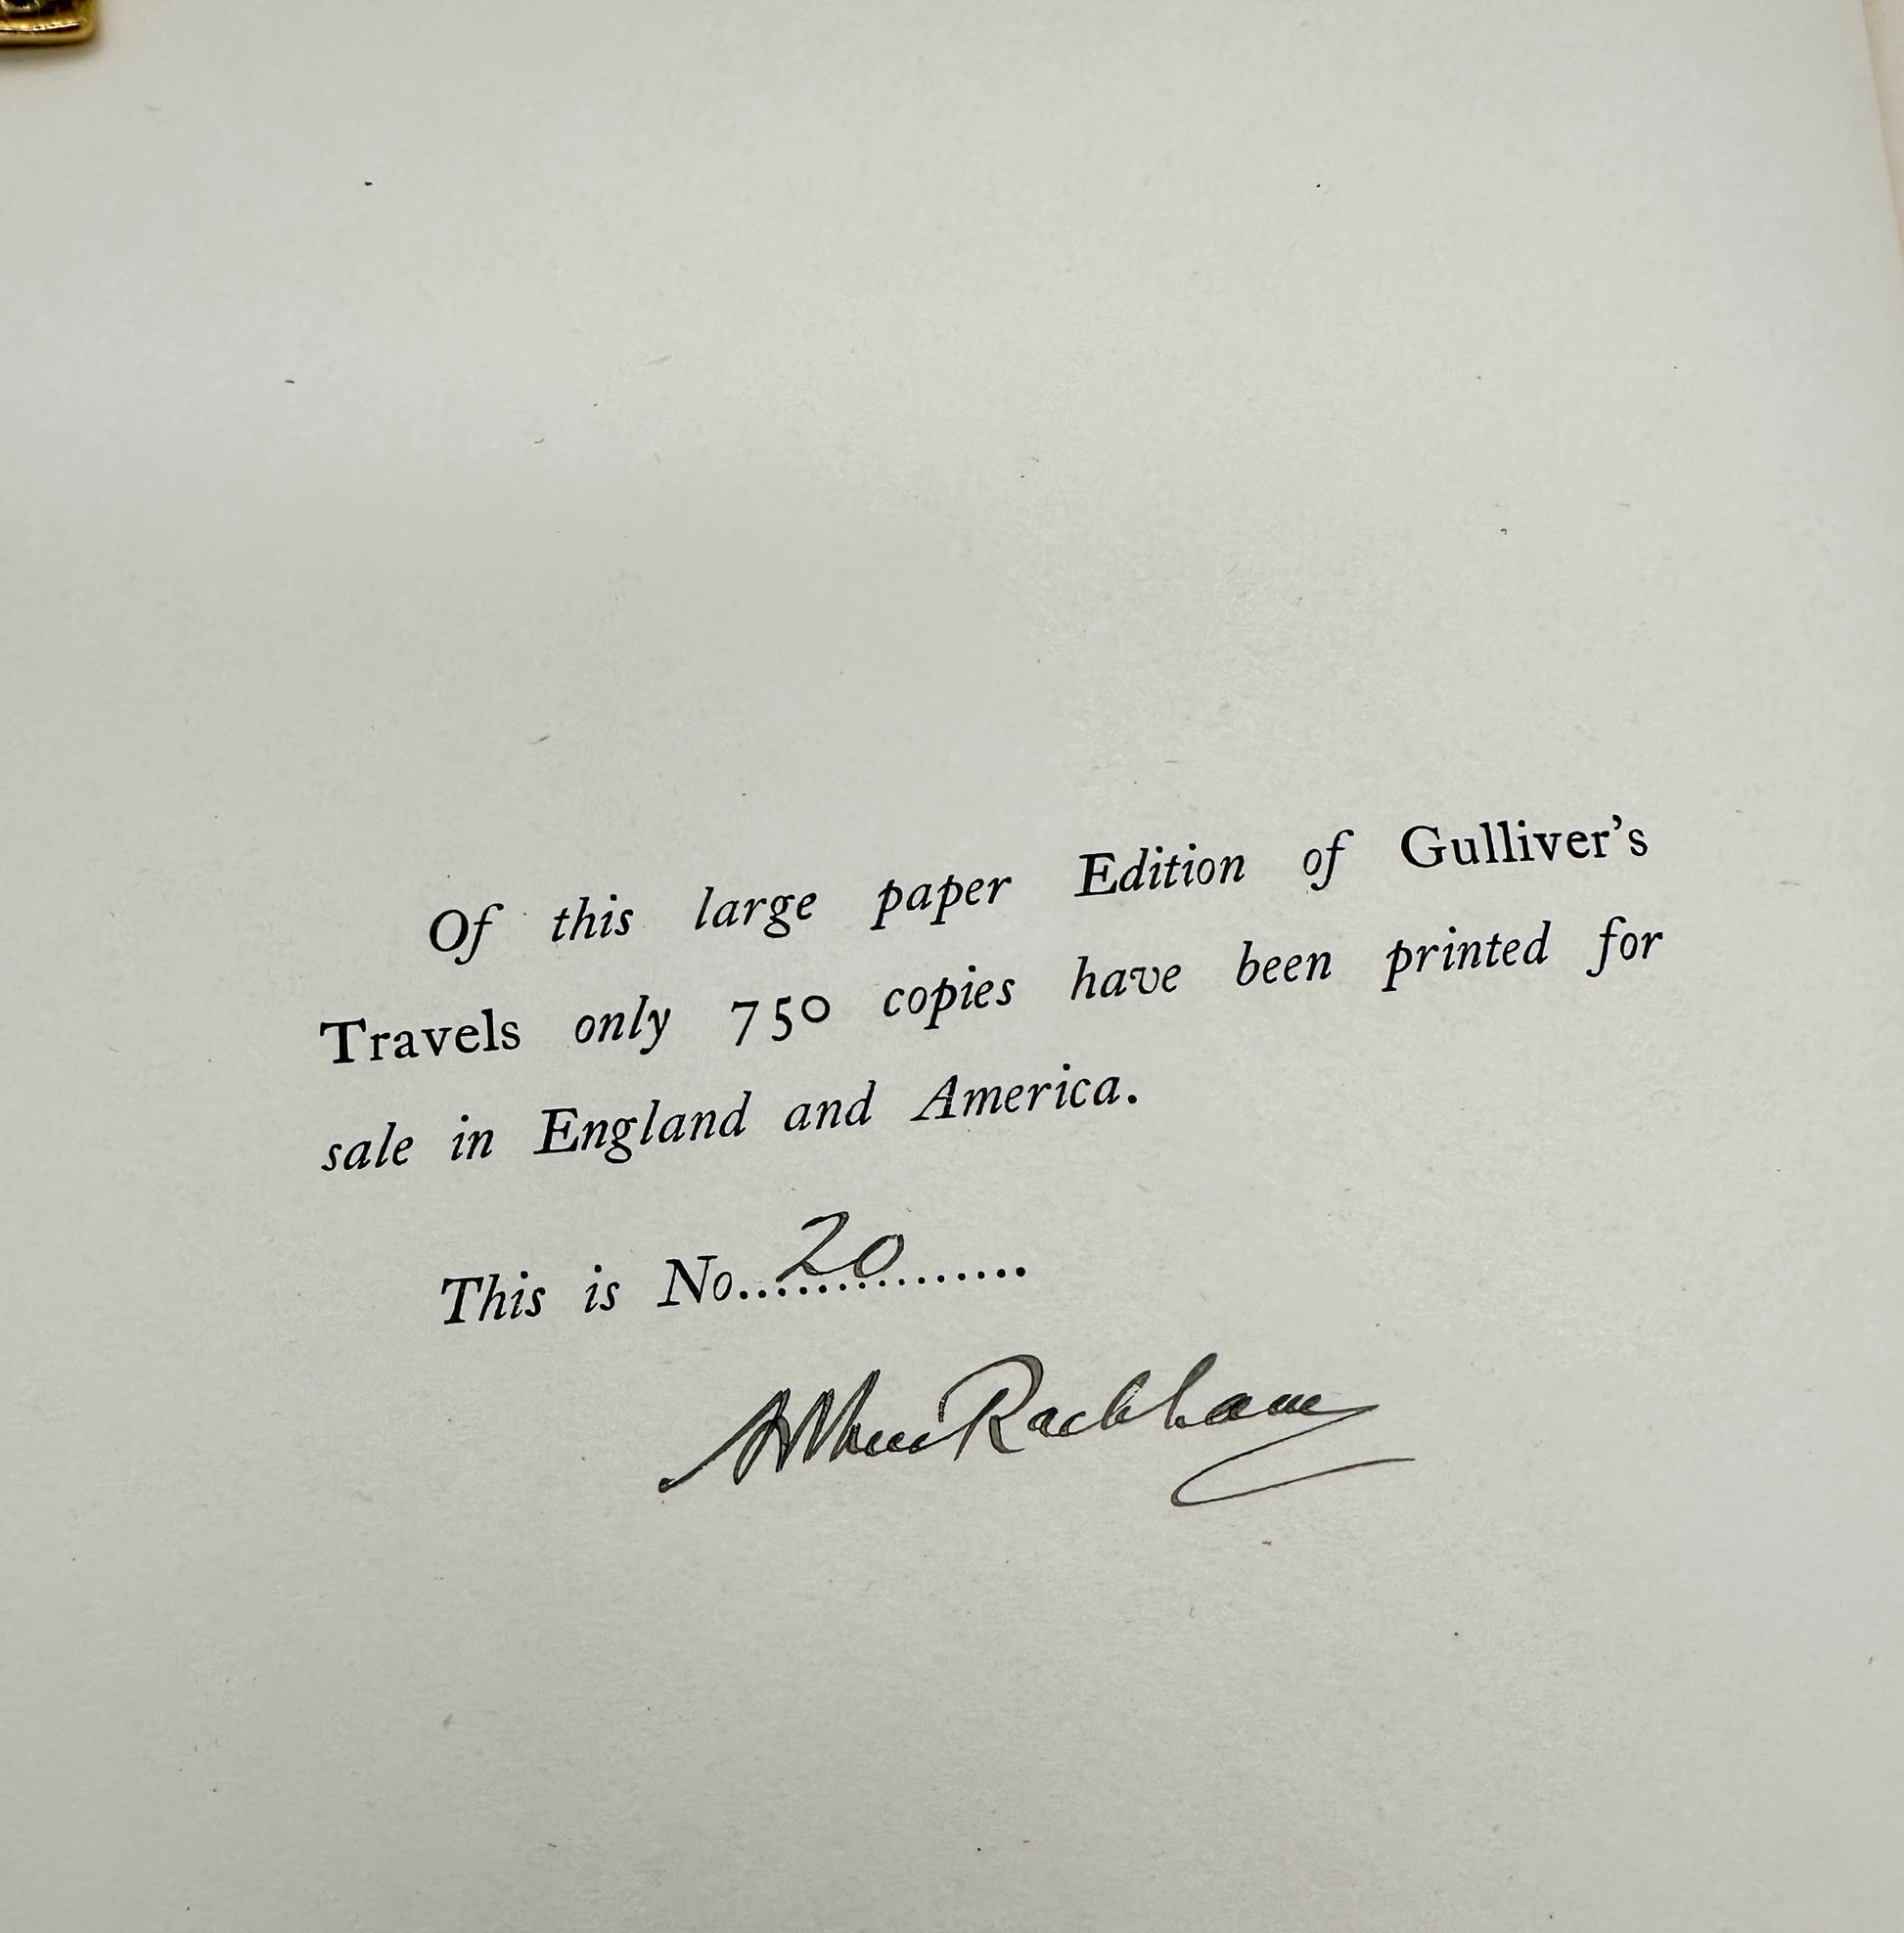 Of this large paper Edition of Gulliver’s
Travels only 750 copies have been printed for
sale in England and America.
This is No...20............
Arthur Rackham